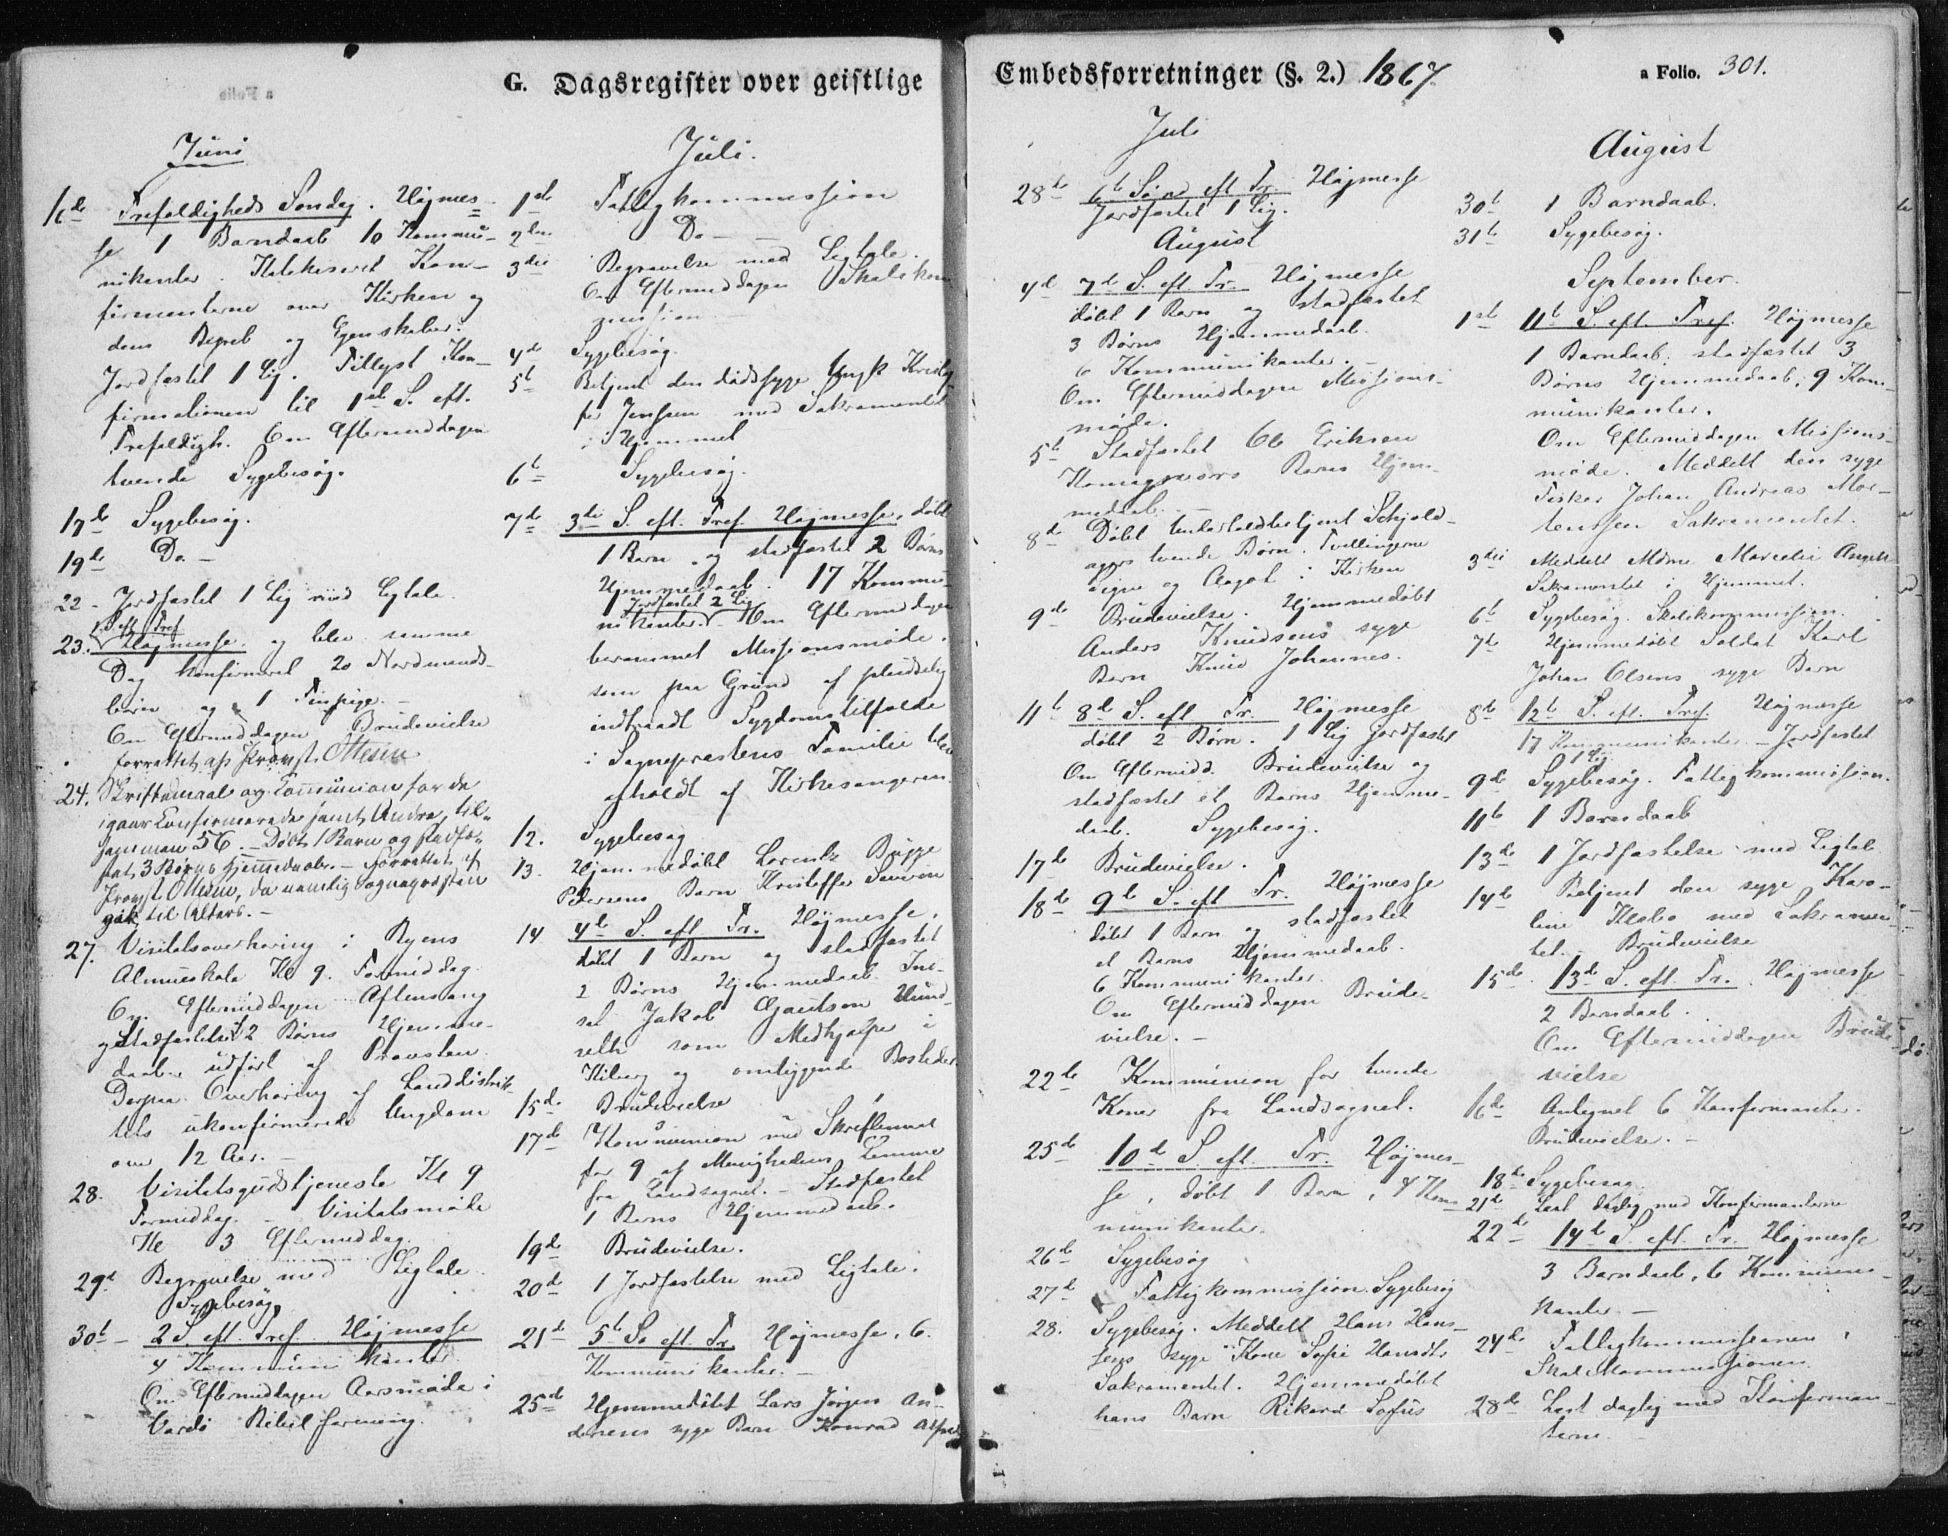 G. Dagsregister over geistlige
Juni
16de Trefoldigheds Søndag. Højmes-
se 1 Barndaab 10 Kommu-
nikanter. Katekiseret Kon-
firmanterne over Kirken og
dens Begreb og Egenskaber.
Jordfæstet 1 Lig. Tillyst Kon-
firmationen til 1ste S. eft.
Trefoldigh. Om Eftermiddagen
tvende Sygebesøg.
17de Sygebesøg.
19de Do –
22 – Jordfæstet 1 Lig med Ligtale.
1 S. eft. Tref.
23. Højmesse og blev samme
Dag konfirmeret 20 Nordmands-
børn og 1 Finpige. –
Om Eftermiddagen Brudevielse
forrettet af Provst Ottesen
24. Skriftemaal og Communion for de
igaar Confirmerede samt Andre, til-
sammen 56. – Døbt 1 Barn og stadfæ-
stet 3 Børns Hjemmedaab. – Forrettet af
Provst Ottesen, da nemlig Sognepræsten
gik til Alters. –
27. Visitatsoverhøring i Byens
Almueskole Kl 9. Formiddag.
Om Eftermiddagen Aftensang
og Stadfæstelse 2 Børns Hjemme-
daab, udført af Provsten.
Derpaa Overhøring af Landdistrik-
tets ukonfirmerede Ungdom
over 12 Aar. –
28. Visitatsgudstjeneste Kl 9
Formiddag. – Visitatsmøde
Kl 3 Eftermiddag.
29d Begravelse med Ligtale.
Sygebesøg.
30te – 2 S. eft. Tref. Højmesse
4 Kommunikanter.
Om Eftermiddagen Aarsmøde i
Vardø Bibelforening.
Juli.
1ste Fattigkommission
2den Do –
3die Begravelse med Ligtale.
Om Eftermiddagen Skolekom-
mission. –
4de Sygebesøg.
5te Betjent den dødssyge Kristof-
fer Jenssen med Sakramentet
i Hjemmet
6te Sygebesøg.
7de 3die S. eft. Tref. Højmesse, døbt
1 Barn og stadfæstet 2 Børns
Hjemmedaab. 17 Kommu-
Jordfæstet 2 Lig
nikanter. Om Eftermiddagen
berammet Missionsmøde,
som paa Grund af pludselig
indtraadt Sygdomstilfælde
i Sognepræstens Familie blev
afholdt af Kirkesangeren.
12. Sygebesøg
13. Hjemmedøbt Lorentz Bugge
Pedersens Barn Kristoffer Severin
14 4de S. eft. Tr. Højmesse,
døbt 1 Barn og stadfæstet
2 Børns Hjemmedaab. Ind-
sat Jakob Gjøutsen
som Medhjælper i
Kiberg og omliggende Bosteder.
15de Brudevielse
17de Kommunion med Skriftemaal
for 9 af Menighedens Lemmer
fra Landsognet. – Stadfæstet
1 Barns Hjemmedaab.
19de Brudevielse.
20de 1 Jordfæstelse med Ligtale.
21de 5te S. eft. Tr. Højmesse, 6
Kommunikanter. –
25de Hjemmedøbt Lars Jørgen An-
dersens syge Barn Konrad
Embedsforretninger (§. 2.) 1867
a Folio. 301.
Juli
28de 6te Sønd. eft. Tr. Højmesse
Jordfæstet 1 Lig.
August
4de 7de S. eft. Tr. Højmesse
døbt 1 Barn og stadfæstet
3 Børns Hjemmedaab.
6 Kommunikanter. –
Om Eftermiddagen Missions-
møde.
5te Stadfæstet Ole Eriksen
Komagværs Barns Hjem-
medaab. –
8de Døbt Underfoldbetjent Schjold-
agers tvende Børn, Tvillingerne
Signe og Aagot i Kirken
9de Brudevielse. Hjemmedøbt
Anders Knudsens syge
Barn Knud Johannes.
11te 8de S. eft. Tr. Højmesse
døbt 2 Børn. 1 Lig jordfæstet
Om Eftermidd. Brudevielse og
stadfæstet et Barns Hjemme-
daab. Sygebesøg.
17de Brudevielse.
18de 9de S. eft. Tr. Højmesse
døbt 1 Barn og stadfæstet
et Barns Hjemmedaab.
6 Kommunikanter.
Om Eftermiddagen Brude-
vielse. –
22de Kommunion for tvende
Koner fra Landsognet.
25de 10de S. eft. Tr. Højmes-
se, døbt 1 Barn, 4 Kom-
munikanter.
26de Sygebesøg
27de Fattigkommission. Sygebesøg
28. Sygebesøg. Meddelt Hans Hans-
sens syge Kone Sofie Hansdtr
Sakramentet. Hjemmedøbt
hans Barn Rikard Sofus
August
30te 1 Barndaab.
31te Sygebesøg.
September.
1ste 11te S. eft. Tref. Højmesse
1 Barndaab, stadfæstet 3
Børns Hjemmedaab, 9 Kom-
munikanter.
Om Eftermiddagen Missions-
møde. Meddelt den syge
Fisker Johan Andreas Mor-
tenssen Sakramentet.
3die Meddelt Mdme
Sakramentet i Hjemmet.
6te Sygebesøg. Skolekommission.
7de Hjemmedøbt Soldat Karl
Johan Olsens syge Barn
8de 12te S. eft. Tref. Højmesse
17 Kommunikanter – Jordfæstet
1 Lig
9de Sygebesøg. Fattigkommission.
11te 1 Barndaab
13de 1 Jordfæstelse med Ligtale.
14de Betjent den syge Karo-
line Klebo med Sakramen-
tet. – Brudevielse
15de 13de S. eft. Tr. Højmesse
2 Barndaab.
Om Eftermiddagen Brude-
vielse
16de Antegnet 6 Konfirmanter.
Brudevielse. –
18de Sygebesøg
21de Læst daglig med Konfirmanterne
22de 14de S. eft. Tr. Højmesse
3 Barndaab, 6 Kommuni-
kanter. –
24de Fattigkommissionen,
Skolekommissionen
28de Læst daglig med Konfirman-
terne. –